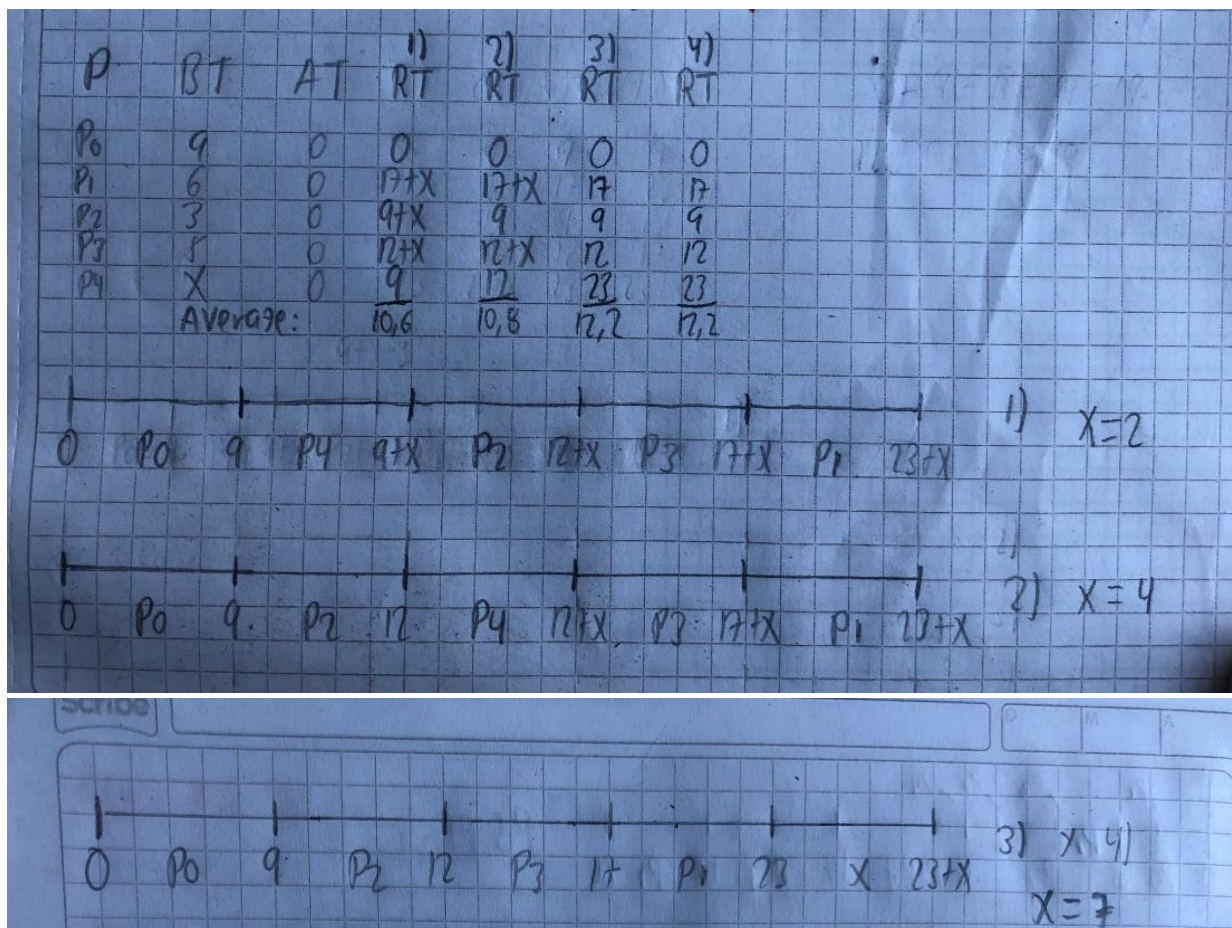 1) 2) 3) 4)
P BT AT RT RT RT RT
P0 9 0 0 0 0 0
P1 6 0 17+X 17+X 17 17
P2 3 0 9+X 9 9 9
P3 5 0 12+X 12+X 12 12
P4 X 0 9 12 23 23
Average: 10,6 10,8 12,2 12,2
1) X=2
0 P0 9 P4 9+X P2 12+X P3 17+X P1 23+X
2) X=4
0 P0 9 P2 12 P4 12+X P3 17+X P1 23+X
Scribe
D M A
3) y 4)
0 P0 9 P2 12 P3 17 P1 23 X 23+X
X=7